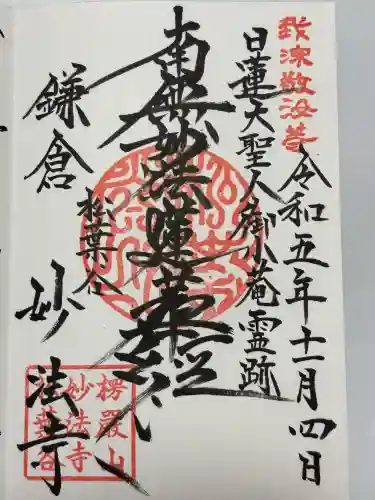 我深敬汝等
令和五年十一月四日
日蓮大聖人御小菴霊跡
南無妙法蓮華経
松葉谷
鎌倉 妙法寺
楞嚴山
妙法寺
葉谷